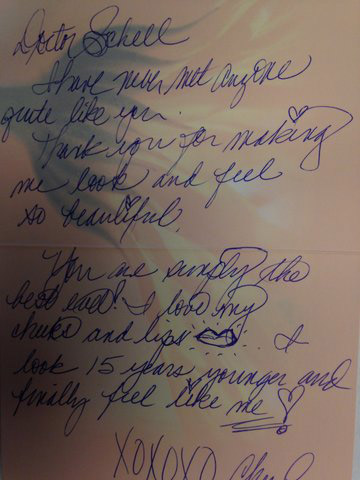 Doctor Schell
I have never met anyone
quite like you.
Thank you for making
me look and feel
so beautiful.
You are simply the
best ead! I love my
cheeks and lips I
look 15 years younger and
finally feel like me!
XOXOXO